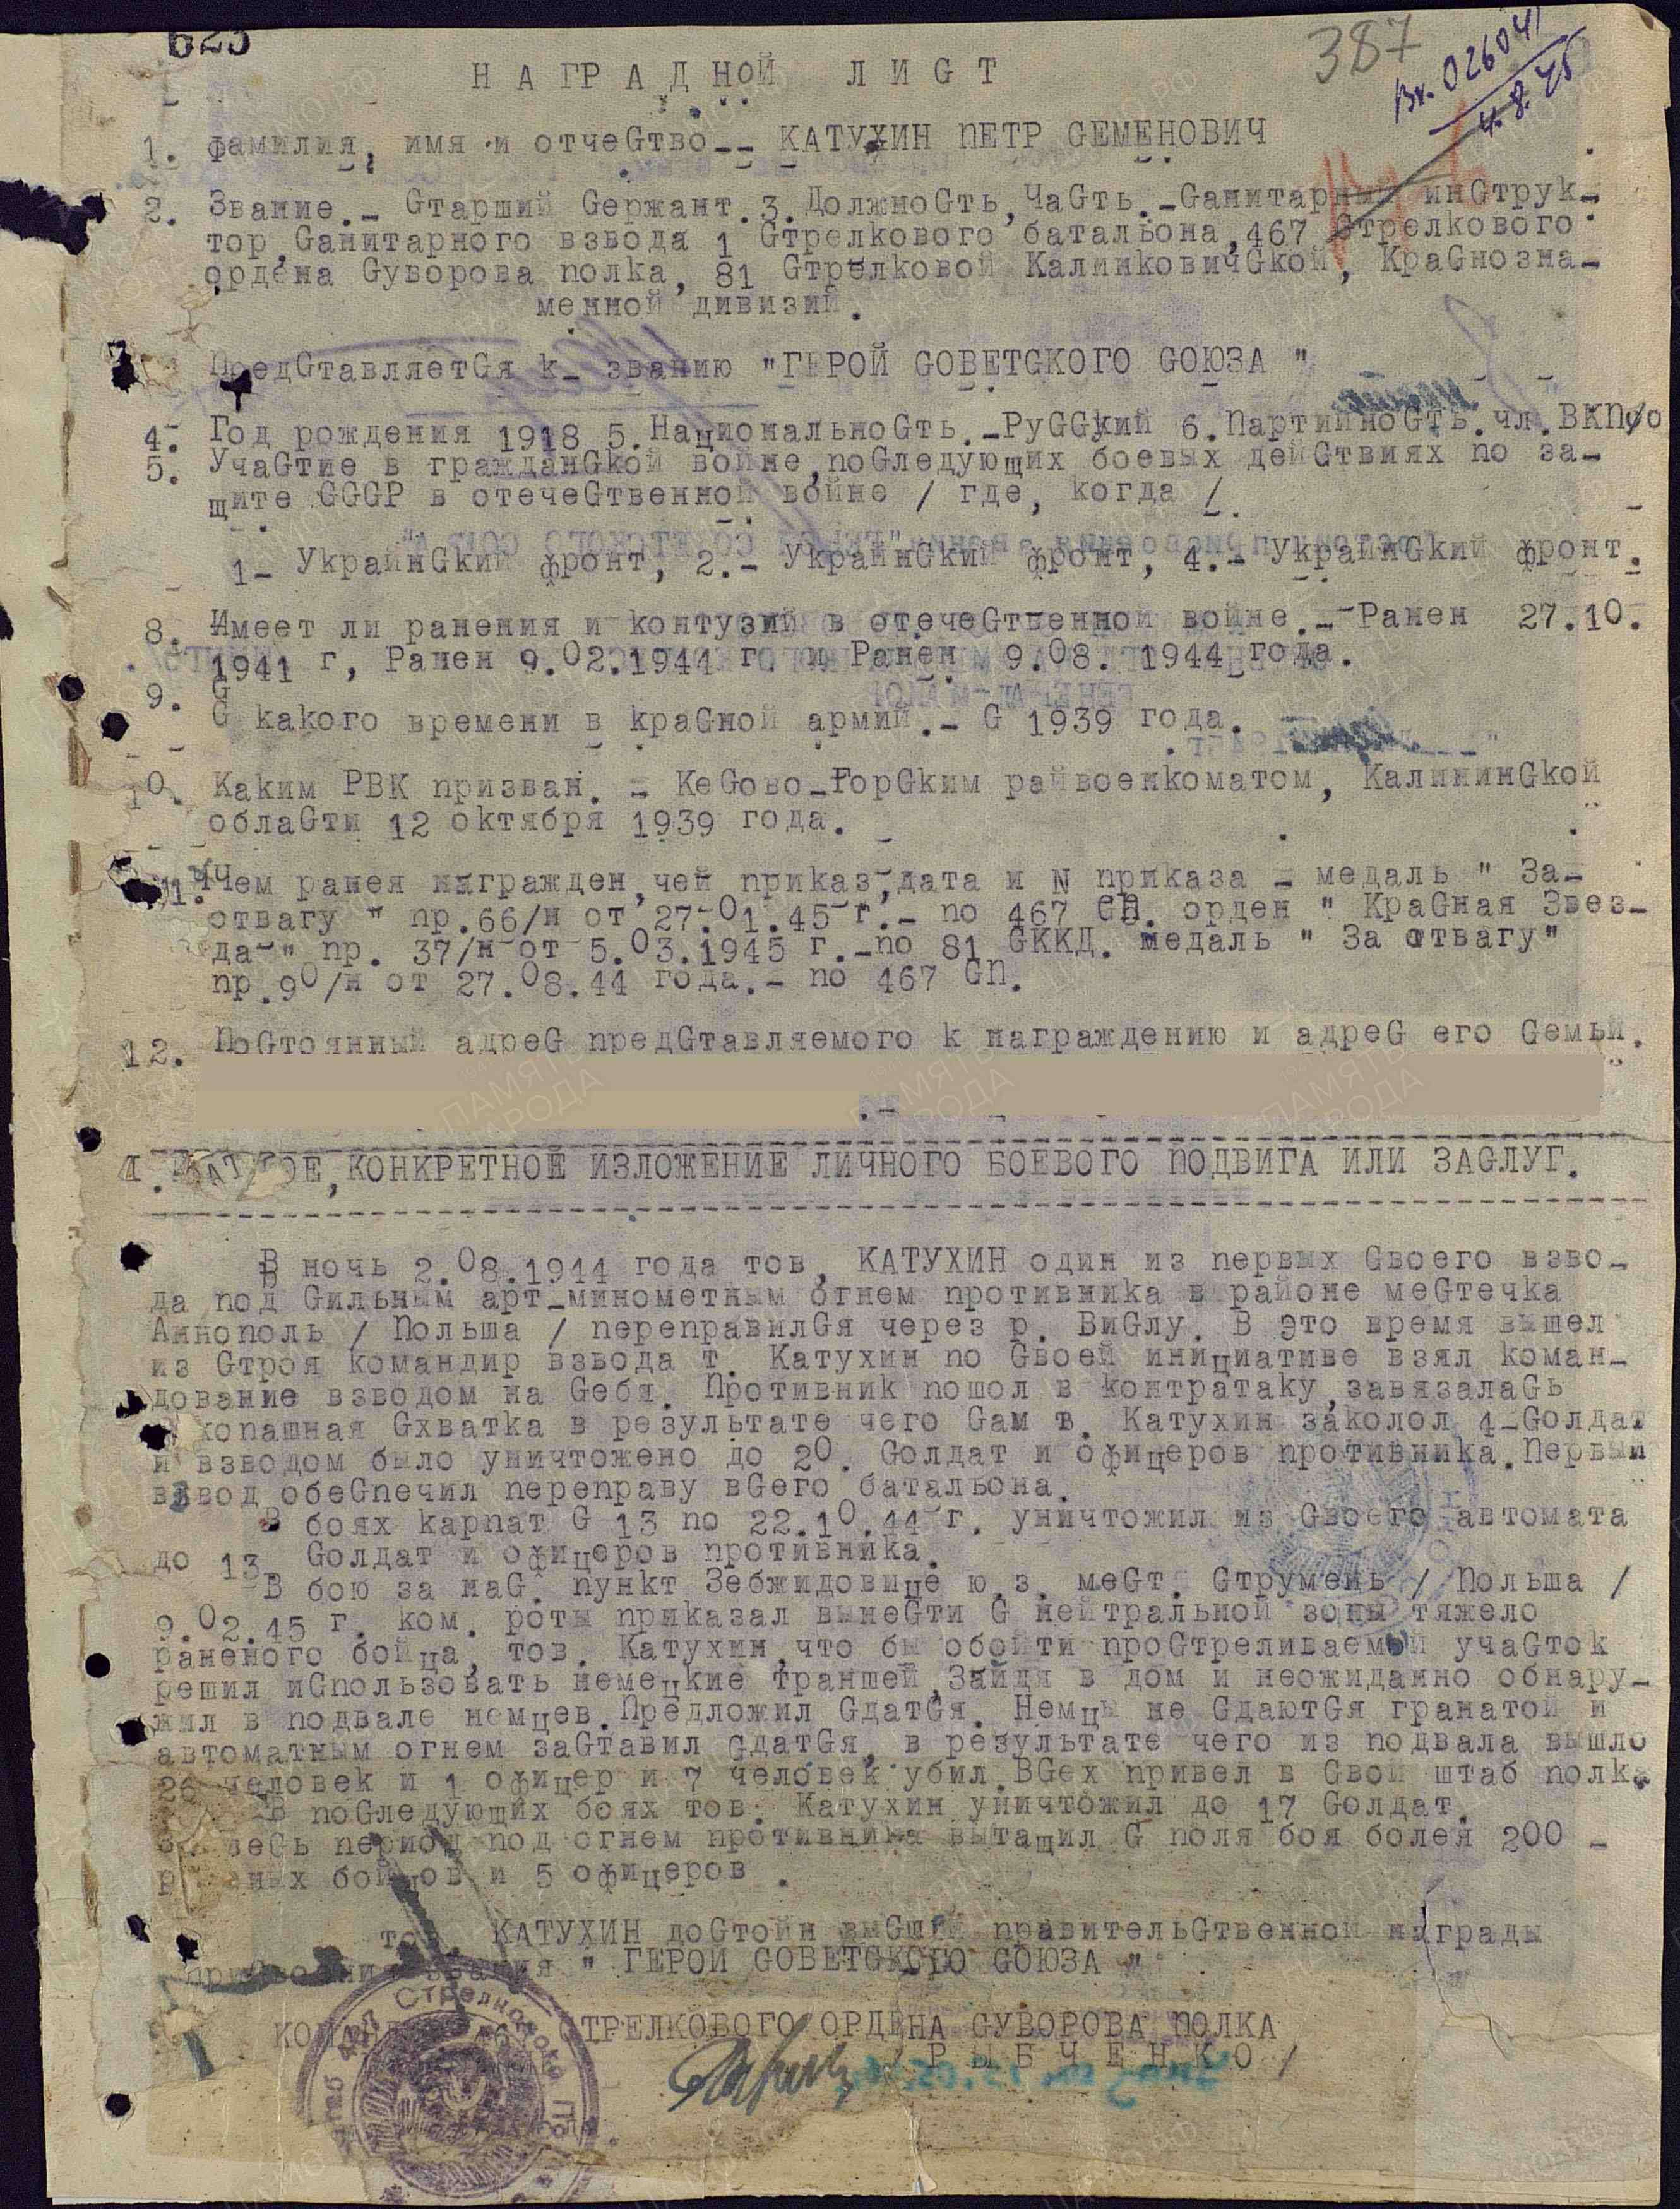 623
387
Вх. 026041
4.8.45
НАГРАДНОЙ ЛИСТ
1. фамилия, имя и отчество-- КАТУХИН ПЕТР СЕМЕНОВИЧ
2. Звание.- Старший Сержант. 3. Должность, Часть.-Санитарный инструк-
тор, Санитарного взвода 1 Стрелкового батальона, 467 Стрелкового
ордена Суворова полка, 81 Стрелковой Калинковичской, Краснозна-
менной дивизий.
Представляется к- званию "ГЕРОЙ СОВЕТСКОГО СОЮЗА "
4. Год рождения 1918 5. Национальность.-Русский 6. Партийность. чл. ВКП
5. Участие в гражданской войне, последующих боевых действиях по за-
щите СССР в отечественной войне / где, когда /.
1- Украйнский фронт, 2.- Украйнский фронт, 4.- Украйнский фронт.
8. Имеет ли ранения и контузий в отечественной войне.- Ранен 27.10.
1941 г, Ранен 9.02.1944 г. и Ранен 9.08. 1944 года.
9. С
С какого времени в красной армий.- С 1939 года.
10. Каким РВК призван. - Кесово-Горским райвоенкоматом, Калининской
области 12 октября 1939 года.
11. Чем ранея награжден, чей приказ, дата и N приказа - медаль " За-
отвагу " пр.66/н от 27.01.45 г.- по 467 СП. орден " Красная Звез-
да-" пр. 37/н от 5.03.1945 г.-по 81 СККД. медаль " За отвагу"
пр.90/н от 27.08.44 года.- по 467 СП.
12. Постоянный адрес представляемого к награждению и адрес его Семьй.
.-
КОНКРЕТНОЕ ИЗЛОЖЕНИЕ ЛИЧНОГО БОЕВОГО ПОДВИГА ИЛИ ЗАСЛУГ.
В ночь 2.08.1944 года тов, КАТУХИН один из первых Своего взво-
да под Сильным арт-минометным огнем противника в районе местечка
Аннополь / Польша / переправился через р. Вислу. В это время вышел
из Строя командир взвода т. Катухин по Своей инициативе взял коман-
дование взводом на Себя. Противник пошол в контратаку, завязалась
копашная Схватка в результате чего Сам т. Катухин заколол 4-Солдат
и взводом было уничтожено до 20. Солдат и офицеров противника. Первый
взвод обеспечил переправу всего батальона.
В боях карпат С 13 по 22.10.44 г. уничтожил из Своего автомата
до 13. Солдат и офицеров противника.
В бою за нас. пункт Зебжидовице ю.з. мест. Струмень / Польша /
9.02.45 г. ком. роты приказал вынести С нейтральной зоны тяжело
раненого бойца, тов. Катухин, что бы обойти простреливаемый участок
решил использовать немецкие траншей, Зайдя в дом и неожиданно обнару-
жил в подвале немцев. Предложил Сдатся. Немцы не Сдаются гранатой и
автоматным огнем заставил Сдатся, в результате чего из подвала вышло
26 человек и 1 офицер и 7 человек убил. Всех привел в Свой штаб полка
В последующих боях тов. Катухин уничтожил до 17 Солдат.
весь период под огнем противника вытащил С поля боя болея 200 -
бойцов и 5 офицеров.
тов. КАТУХИН достойн высшей правительственной награды
присвоения звания " ГЕРОЙ СОВЕТСКОГО СОЮЗА "
КОМАНДИР 467 СТРЕЛКОВОГО ОРДЕНА СУВОРОВА ПОЛКА
/ РЫБЧЕНКО /